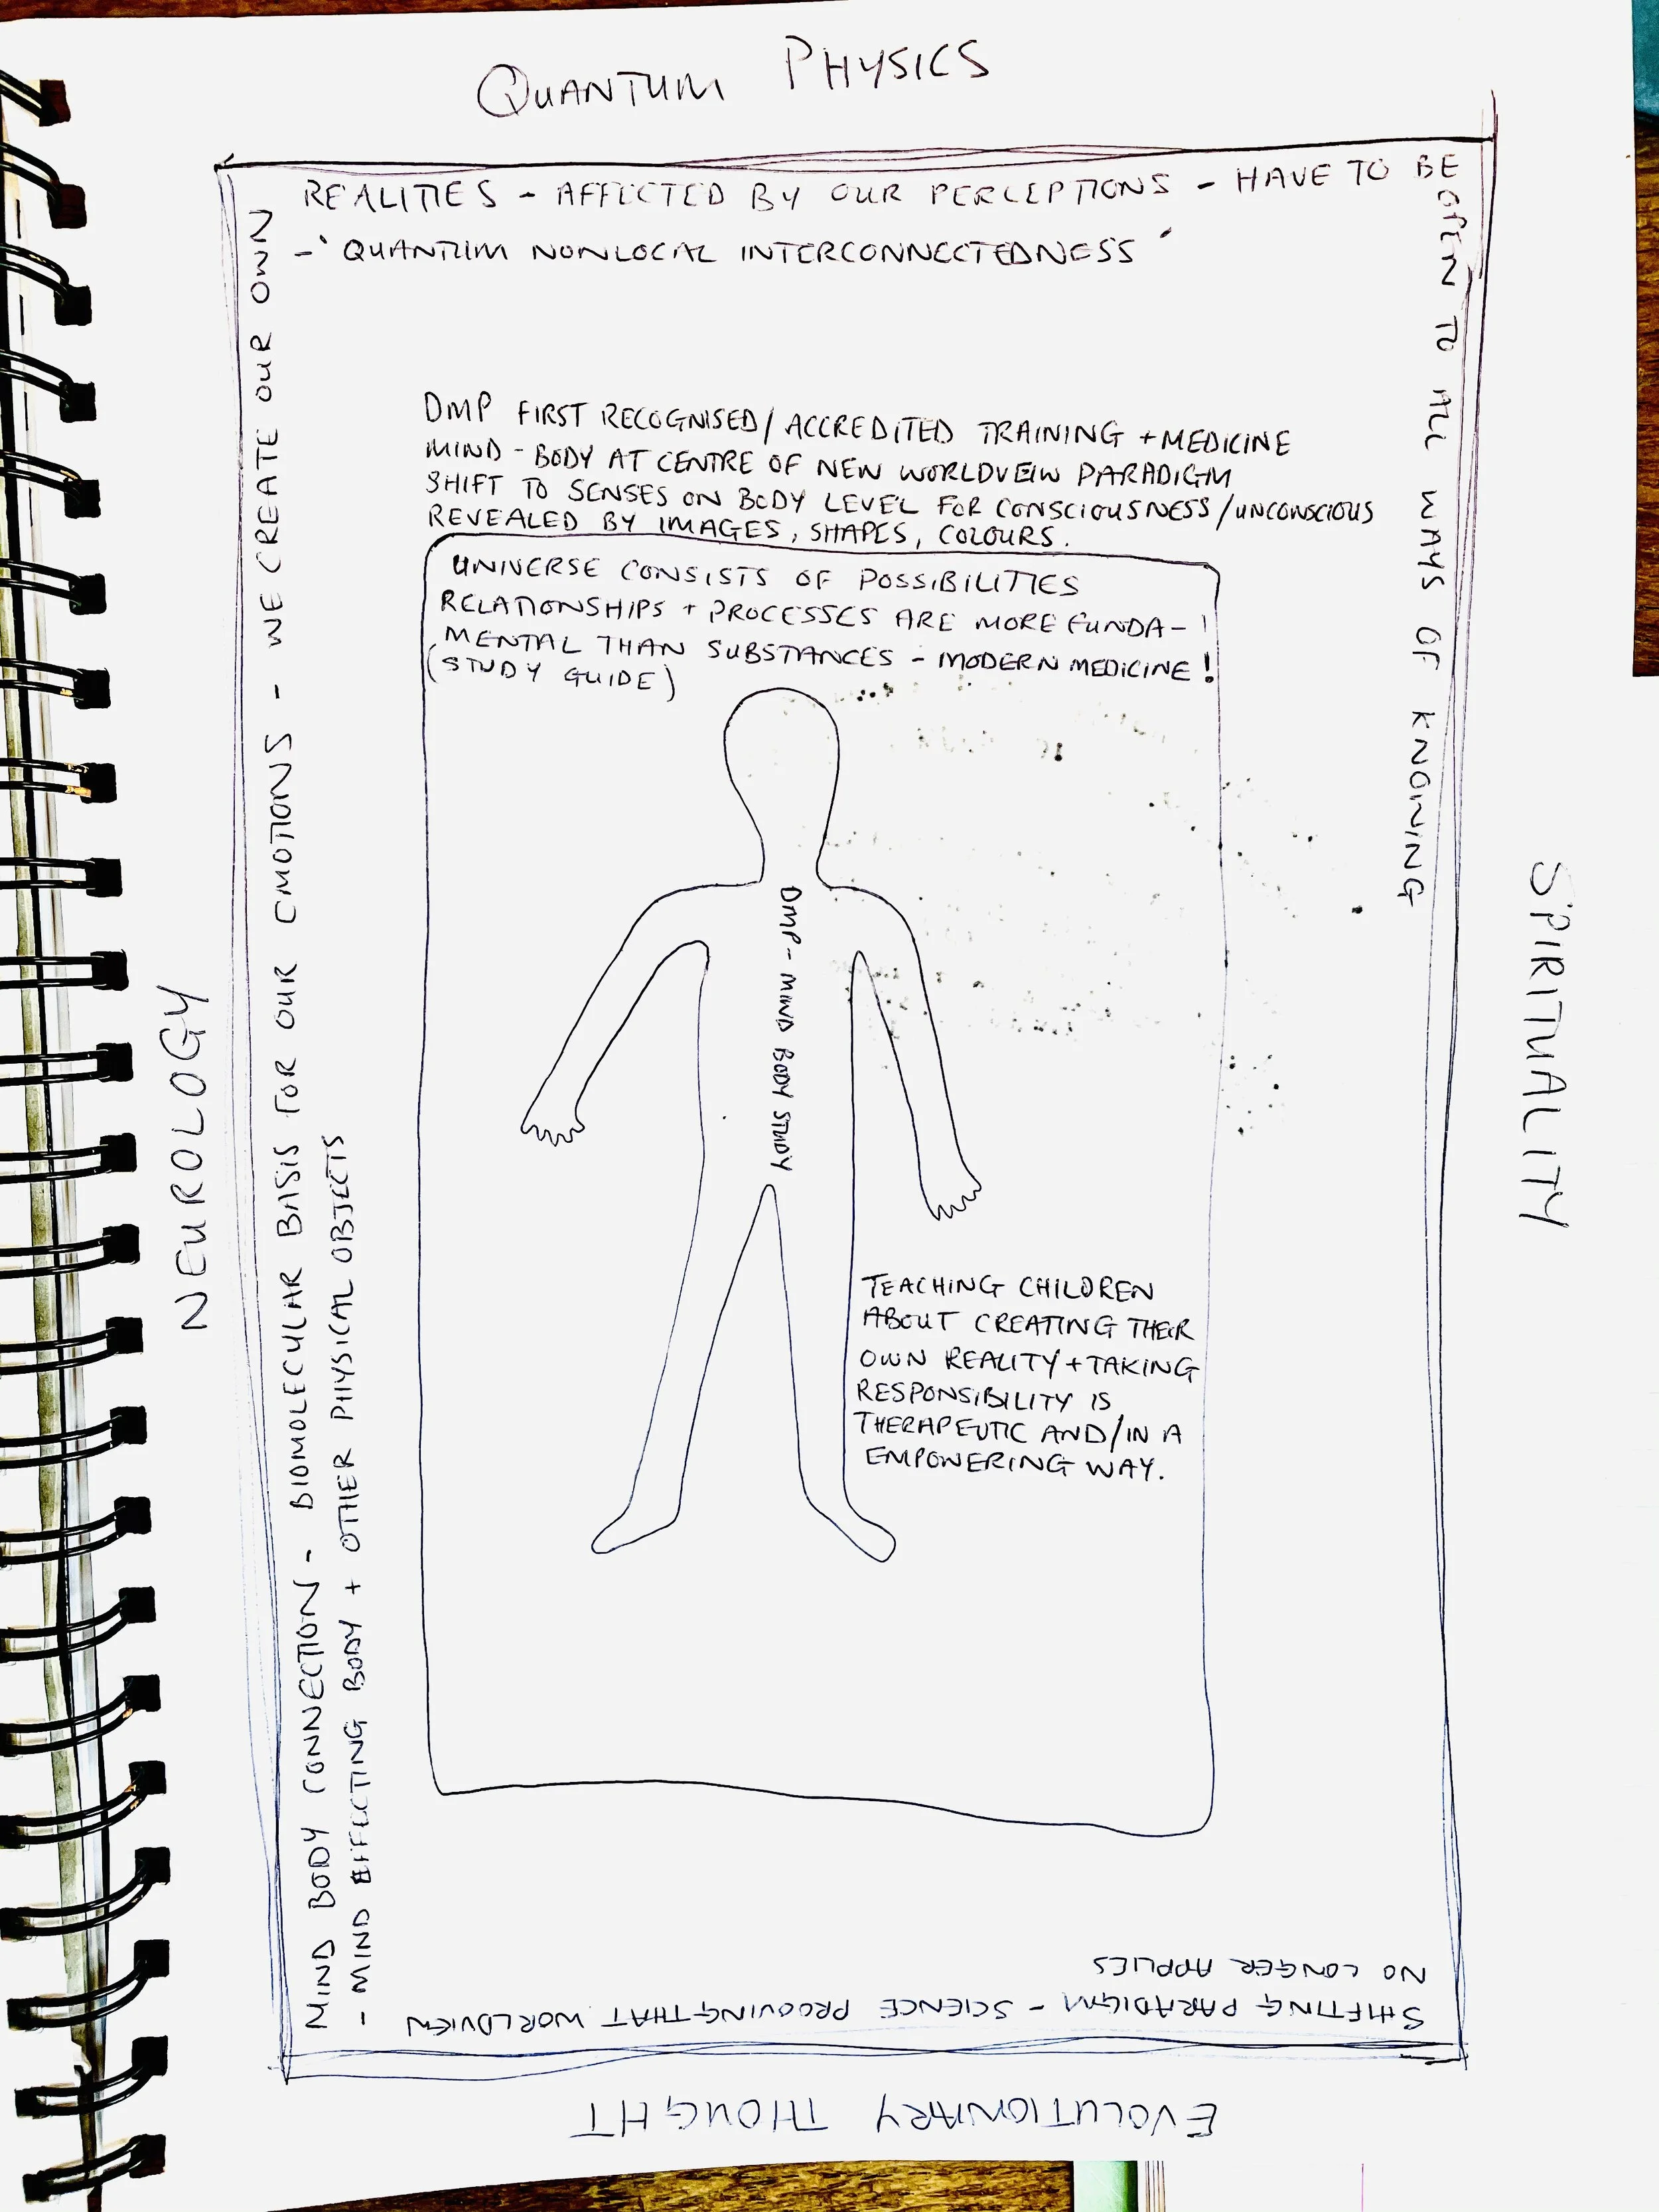 QUANTUM PHYSICS
REALITIES - AFFECTED BY OUR PERCEPTIONS - HAVE TO BE
OPEN TO ALL WAYS OF KNOWING
- 'QUANTUM NONLOCAL INTERCONNECTEDNESS'
DMP FIRST RECOGNISED/ACCREDITED TRAINING + MEDICINE
MIND - BODY AT CENTRE OF NEW WORLDVEIW PARADIGM
SHIFT TO SENSES ON BODY LEVEL FOR CONSCIOUSNESS/UNCONSCIOUS
REVEALED BY IMAGES, SHAPES, COLOURS.
UNIVERSE CONSISTS OF POSSIBILITIES
RELATIONSHIPS + PROCESSES ARE MORE FUNDA-
MENTAL THAN SUBSTANCES - MODERN MEDICINE!
(STUDY GUIDE)
DMP - MIND BODY STUDY
TEACHING CHILDREN
ABOUT CREATING THEIR
OWN REALITY + TAKING
RESPONSIBILITY IS
THERAPEUTIC AND/IN A
EMPOWERING WAY.
NEUROLOGY
MIND BODY CONNECTION - BIOMOLECULAR BASIS FOR OUR EMOTIONS - WE CREATE OUR OWN
- MIND EFFECTING BODY + OTHER PHYSICAL OBJECTS
SPIRITUALITY
SHIFTING PARADIGM - SCIENCE PROOVING THAT WORLDVIEW
NO LONGER APPLIES
EVOLUTIONARY THOUGHT